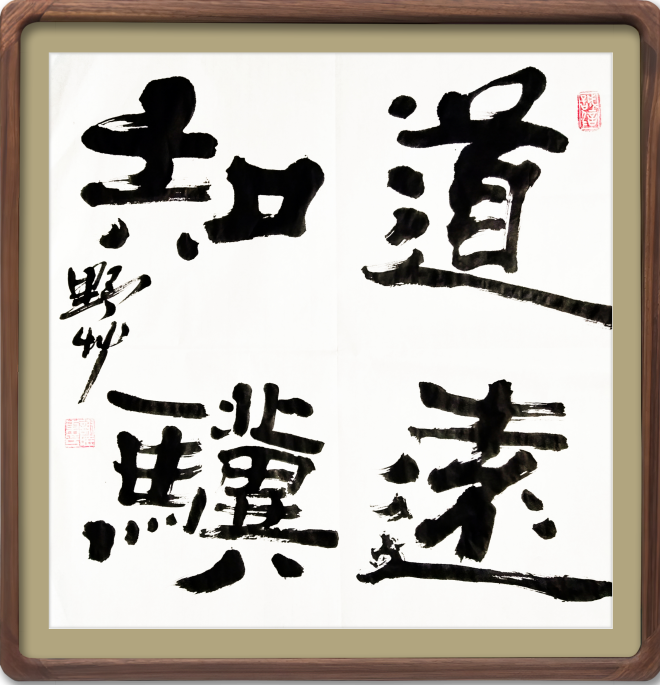 道遠
知驥
野艸